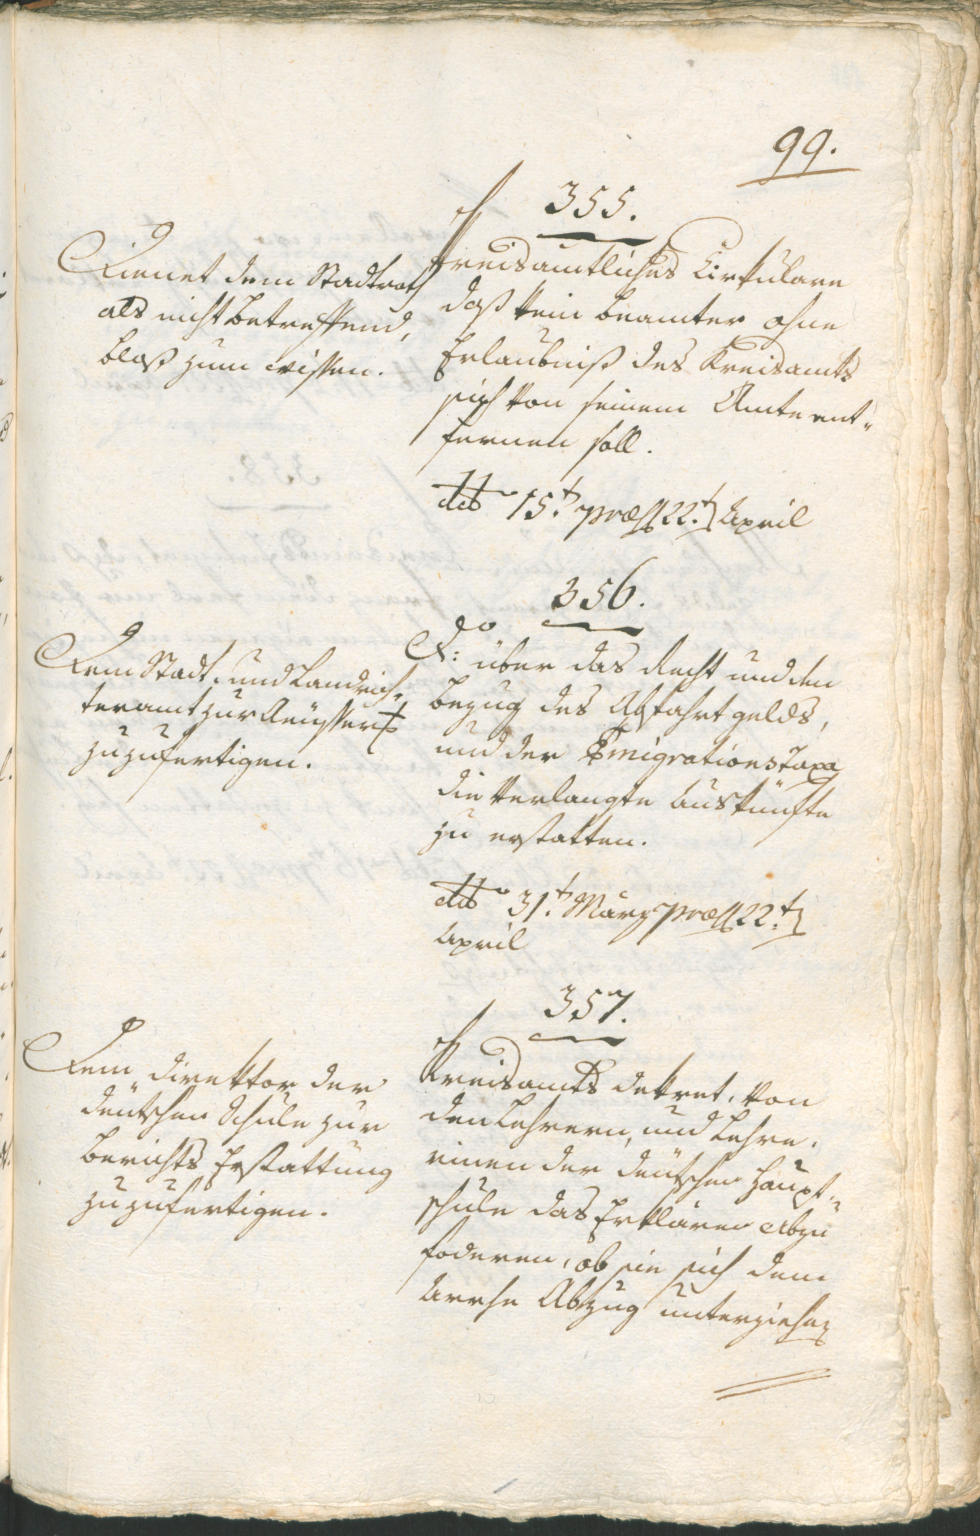 99.
355.
Dienet dem Stadtrath
als nicht betreffend,
bloß zum wissen.
Kreisamtliches Cirkulare
daß kein Beamter ohne
Erlaubniß des Kreisamts
sich von seinem Amte ent„
fernen soll.
dto 15t. præs 22.t April
356.
Dem Stadt- und Landrich„
teramt zur Aeüsser
zuzufertigen.
do
über das Recht und den
Bezug des Abfahrtgelds,
und der Emigrationstaxa
die verlangte Auskünfte
zu erstatten.
dto 31t. März præs 22.t
April
357.
Dem Direktor der
deütschen Schule zur
Berichts Erstattung
zuzufertigen.
Kreisamts Dekret, von
den Lehrern, und Lehre„
rinen der deütschen Haupt„
schule das Erklären abzu
foderen, ob sie sich dem
Arrhe Abzug unterziehen